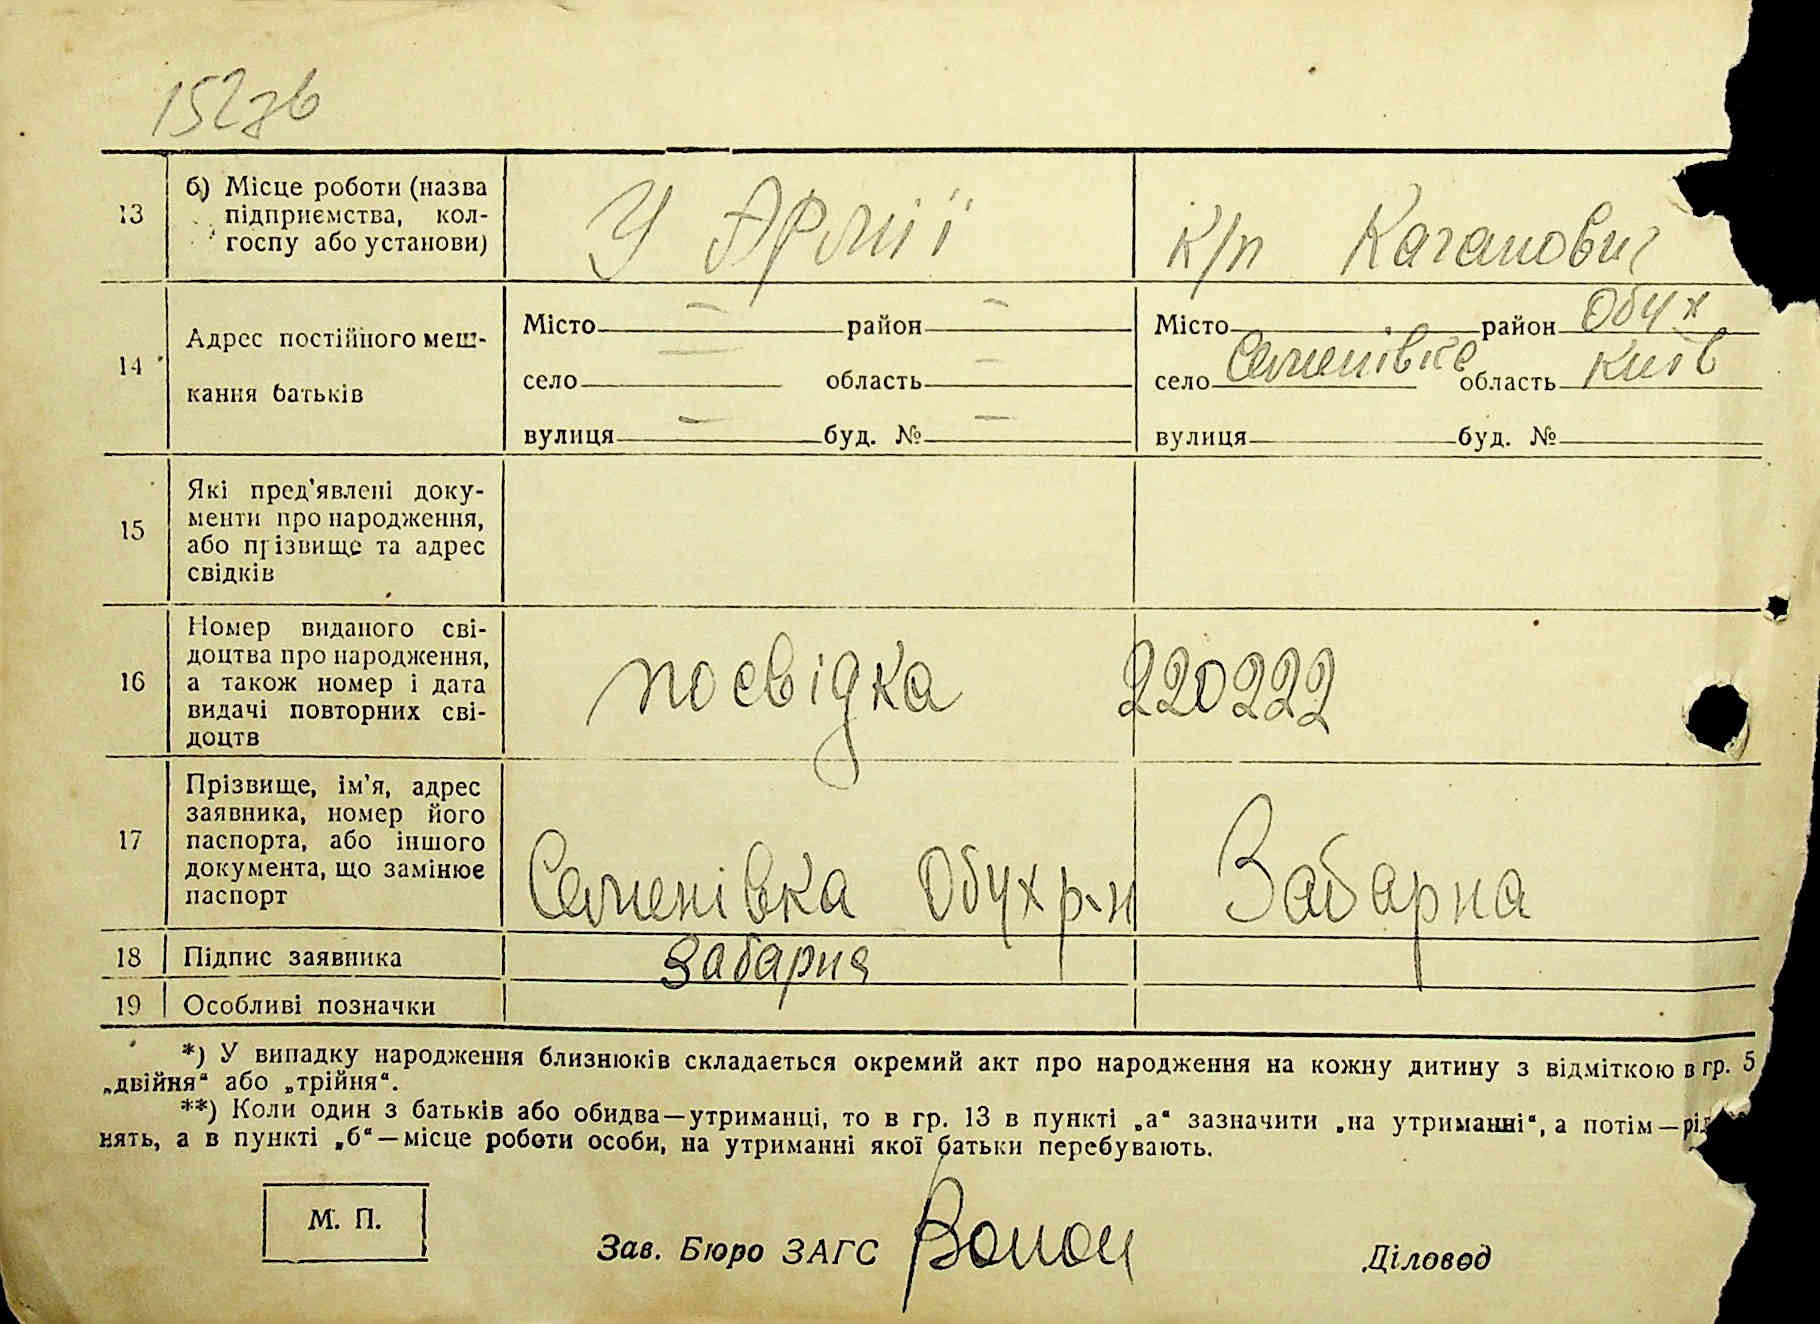 152зв
13 б) Місце роботи (назва
підприємства, кол-
госпу або установи)
У Армії
к/п Каганович
14 Адрес постійного меш-
кання батьків
Місто — район —
село — область —
вулиця — буд. № —
Місто район Обух
село Семенівка область Київ
вулиця буд. №
15 Які пред'явлені доку-
менти про народження,
або прізвище та адрес
свідків
16 Номер виданого сві-
доцтва про народження,
а також номер і дата
видачі повторних сві-
доцтв
посвідка 220222
17 Прізвище, ім'я, адрес
заявника, номер його
паспорта, або іншого
документа, що замінює
паспорт
Семенівка Обух р-н Забарна
18 Підпис заявника Забарна
19 Особливі позначки
*) У випадку народження близнюків складається окремий акт про народження на кожну дитину з відміткою в гр. 5
„двійня“ або „трійня“.
**) Коли один з батьків або обидва—утриманці, то в гр. 13 в пункті „а“ зазначити „на утриманні“, а потім—рід
нять, а в пункті „б“—місце роботи особи, на утриманні якої батьки перебувають.
М. П.
Зав. Бюро ЗАГС
Діловод